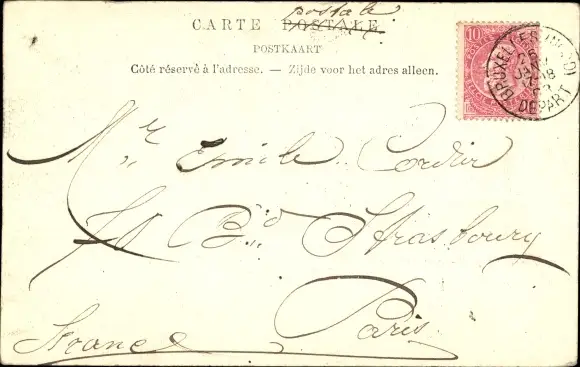 postale
CARTE POSTALE
POSTKAART
Côté réservé à l'adresse. — Zijde voor het adres alleen.
10
BRUXELLES (MIDI)
DEPART
Mr Emile Cordier
70 Bd Strasbourg
Paris
France